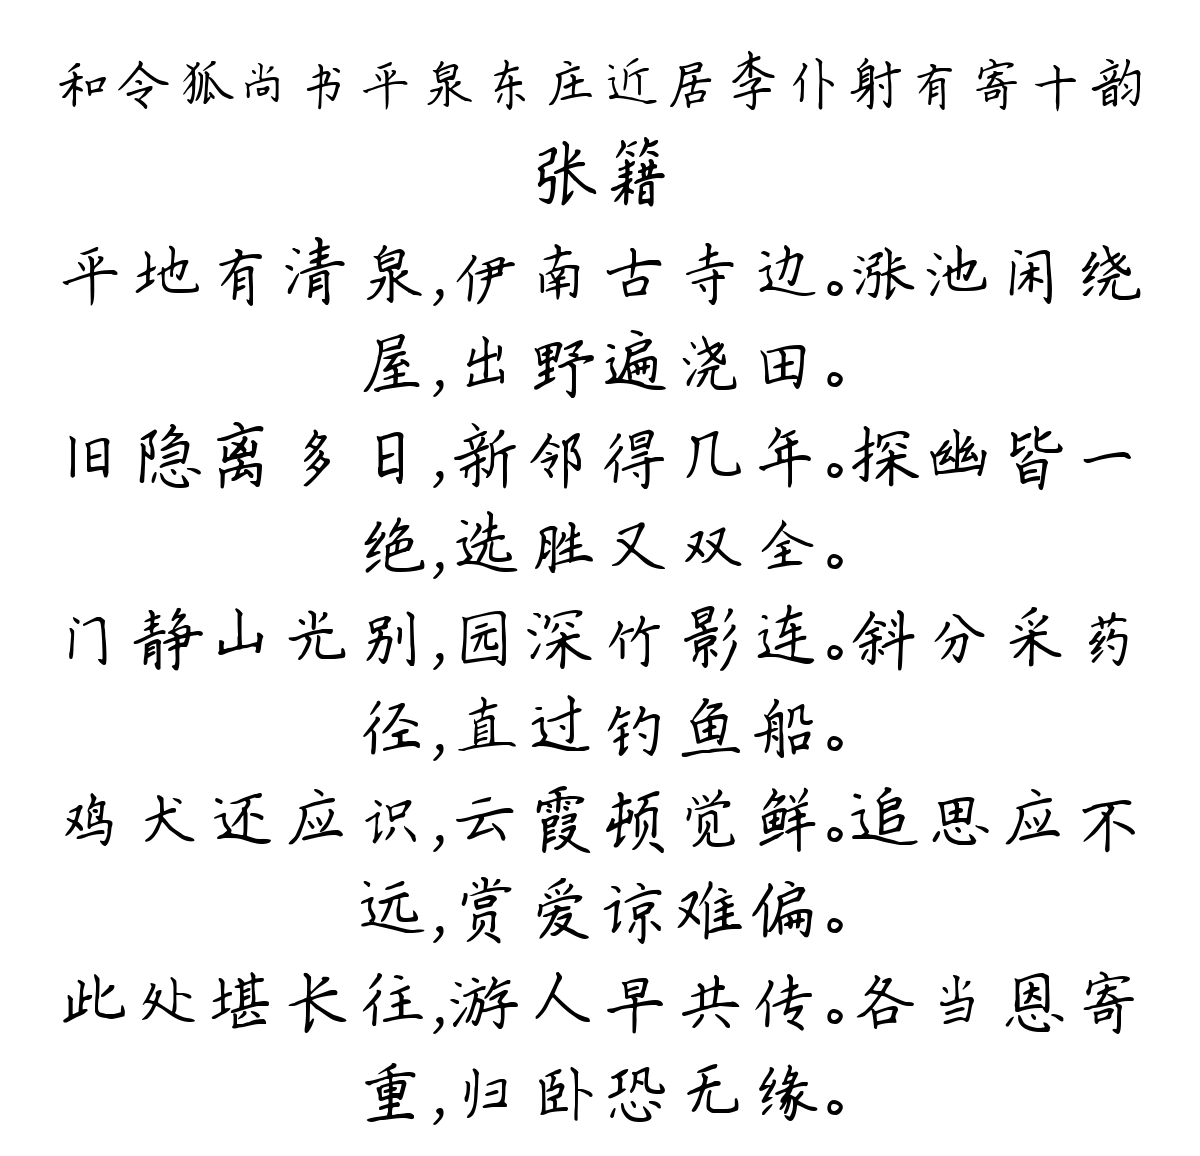 和令狐尚书平泉东庄近居李仆射有寄十韵
张籍
平地有清泉,伊南古寺边。涨池闲绕
屋,出野遍浇田。
旧隐离多日,新邻得几年。探幽皆一
绝,选胜又双全。
门静山光别,园深竹影连。斜分采药
径,直过钓鱼船。
鸡犬还应识,云霞顿觉鲜。追思应不
远,赏爱谅难偏。
此处堪长往,游人早共传。各当恩寄
重,归卧恐无缘。